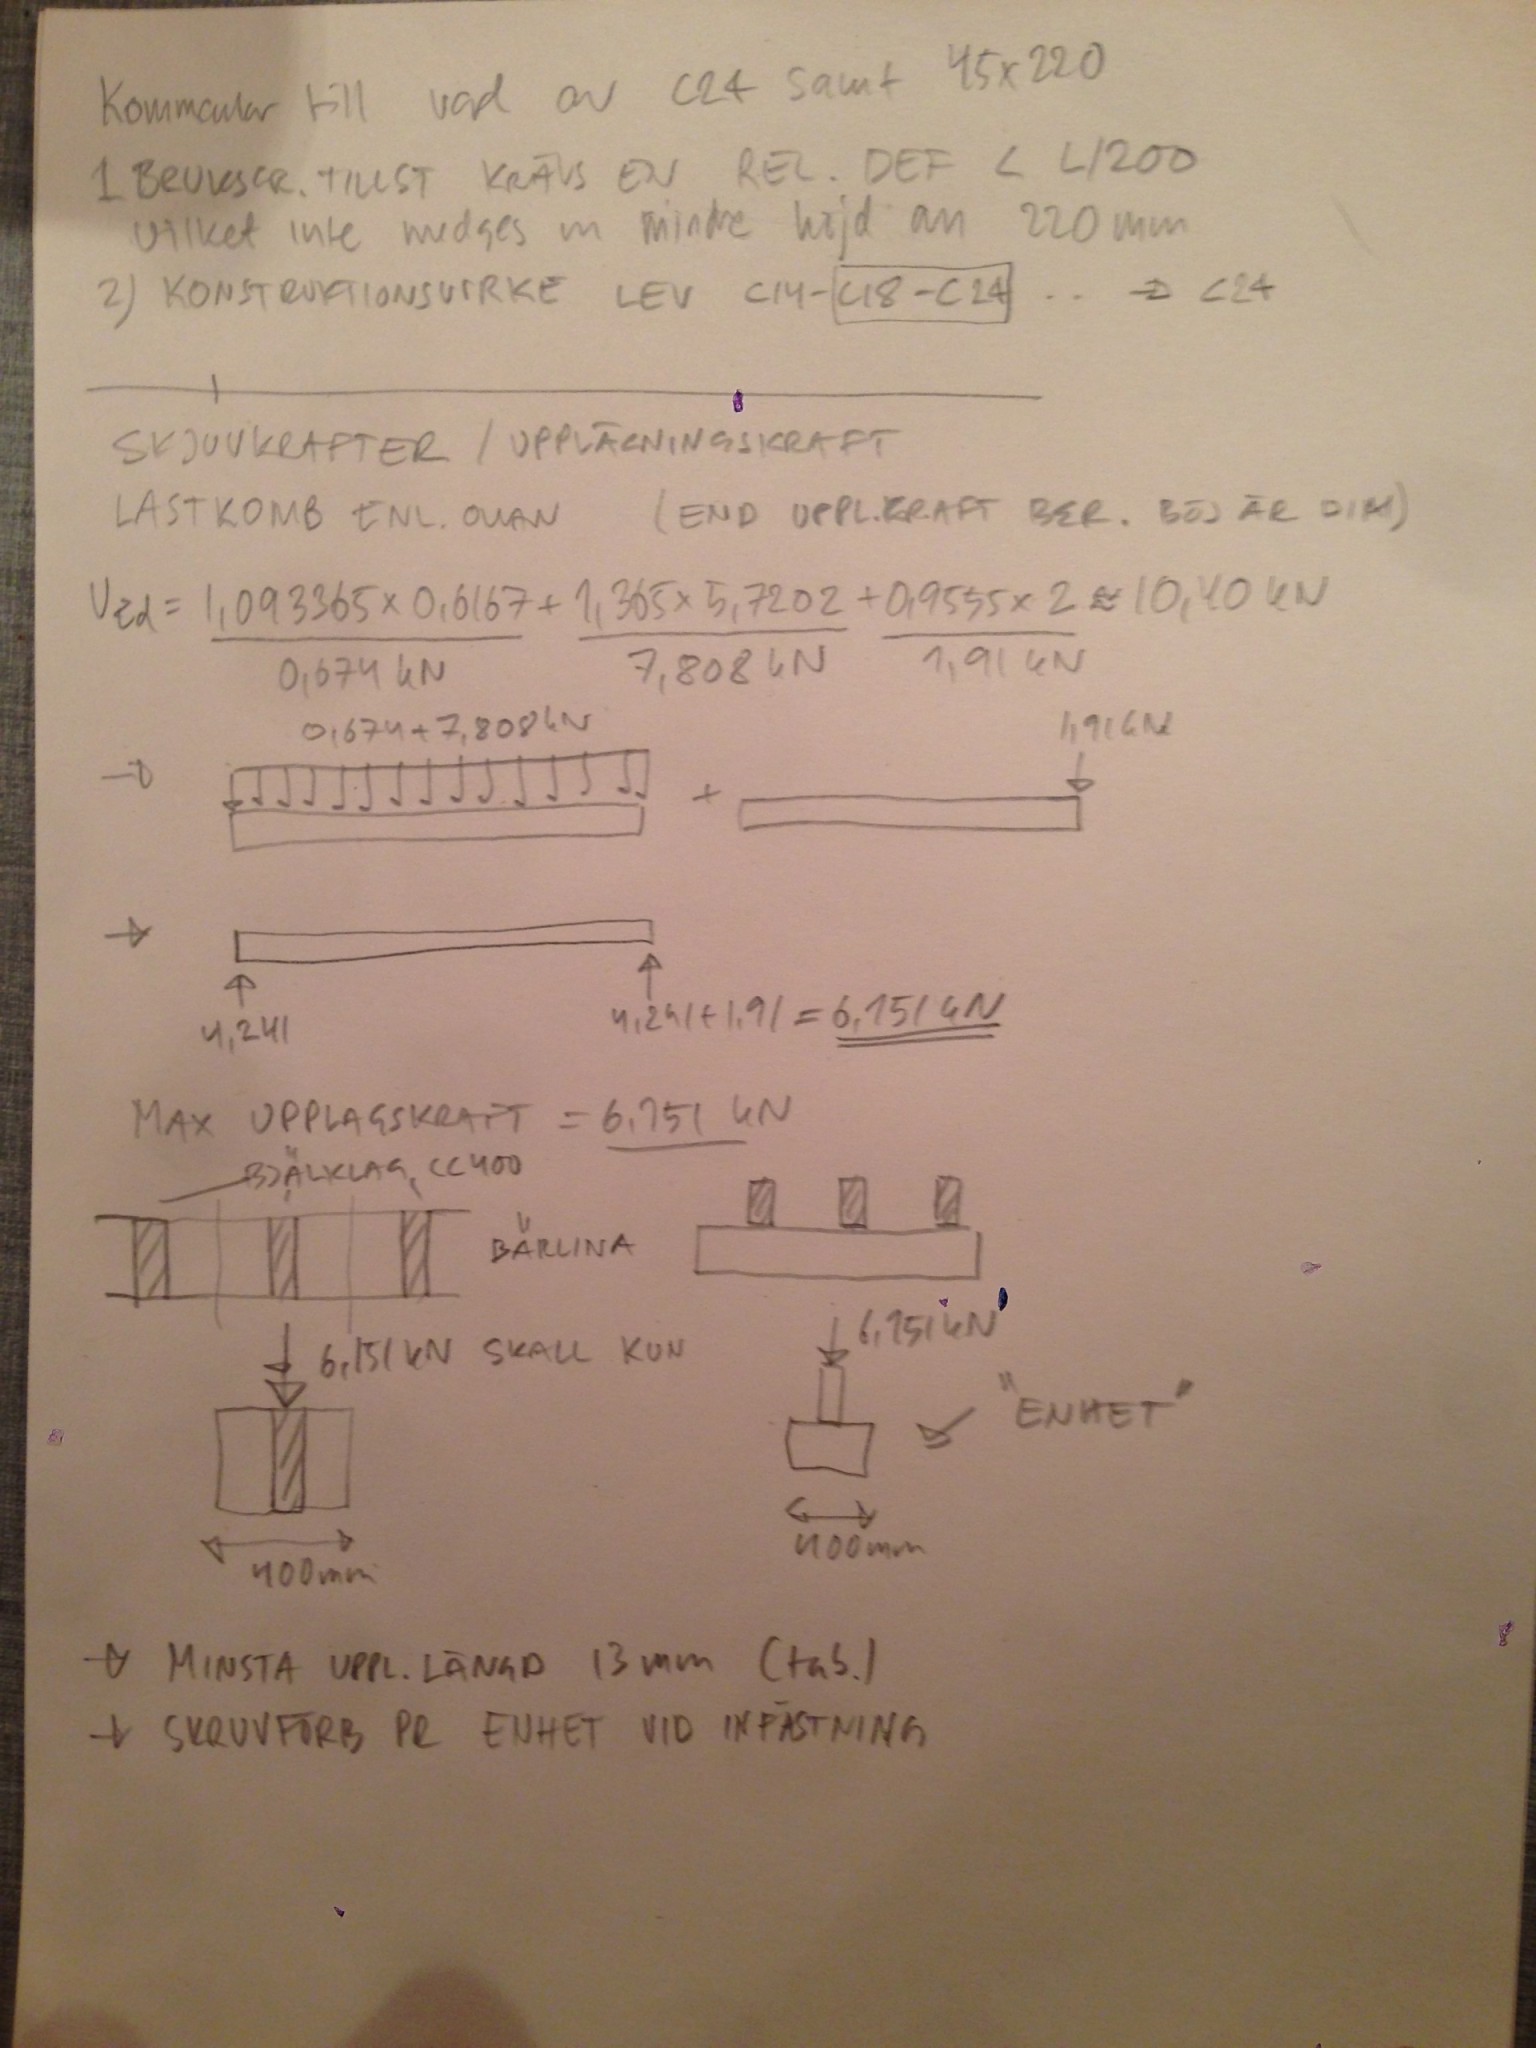 Kommentar till val av C24 samt 45x220
1. BRUKSGR. TILLST KRÄVS EN REL. DEF < L/200
vilket inte medges en mindre höjd än 220 mm
2) KONSTRUKTIONSVIRKE LEV C14-C18-C24 .. ⇒ C24
SKJUVKRAFTER / UPPLÄGNINGSKRAFT
LASTKOMB ENL. OVAN (END UPPL.KRAFT BER. BÖJ ÄR DIM)
VEd = 1,093365 x 0,6167 + 1,365 x 5,7202 + 0,9555 x 2 ≈ 10,40 kN
0,674 kN 7,808 kN 1,91 kN
0,674 + 7,808 kN 1,91 kN
→ +
→
4,241 4,241 + 1,91 = 6,151 kN
MAX UPPLAGSKRAFT = 6,151 kN
BJÄLKLAG, CC400
BÄRLINA
6,151 kN SKALL KUN 6,151 kN
"ENHET"
400mm 400mm
→ MINSTA UPPL. LÄNGD 13 mm (tab.)
→ SKRUVFÖRB PR ENHET VID INFÄSTNING